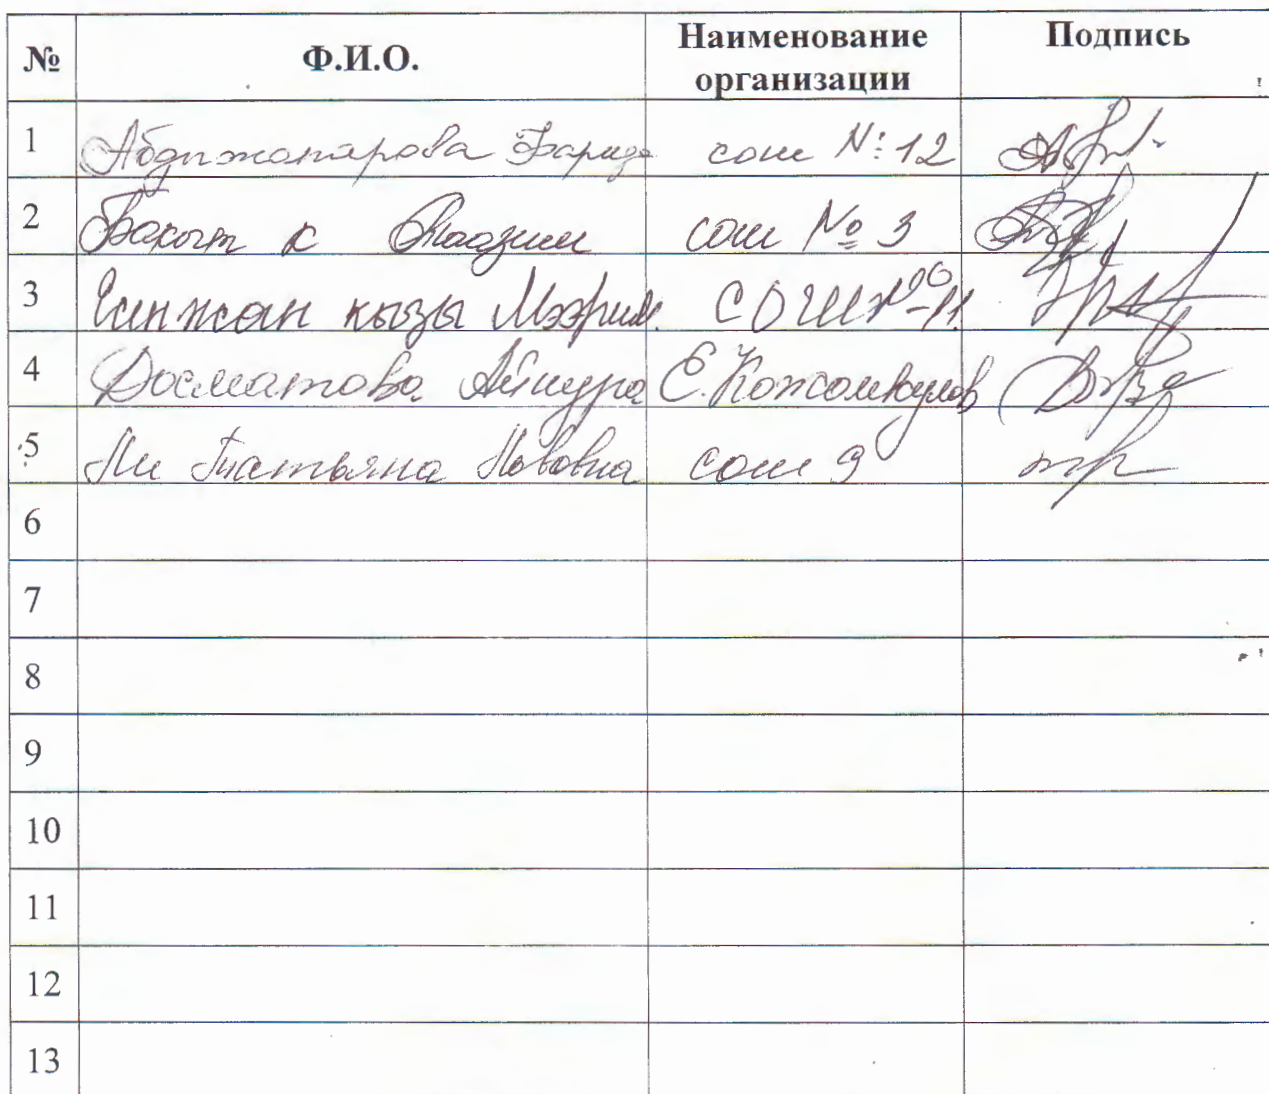 № Ф.И.О. Наименование организации Подпись
1 Абдижапарова Фарида сош №: 12
2 Бакыт к сош № 3
3 кызы Мээрим СОШ № 11
4 Досматова Айнура Е. Кожомкулов
5 Ли Татьяна Львовна сош 9
6
7
8
9
10
11
12
13